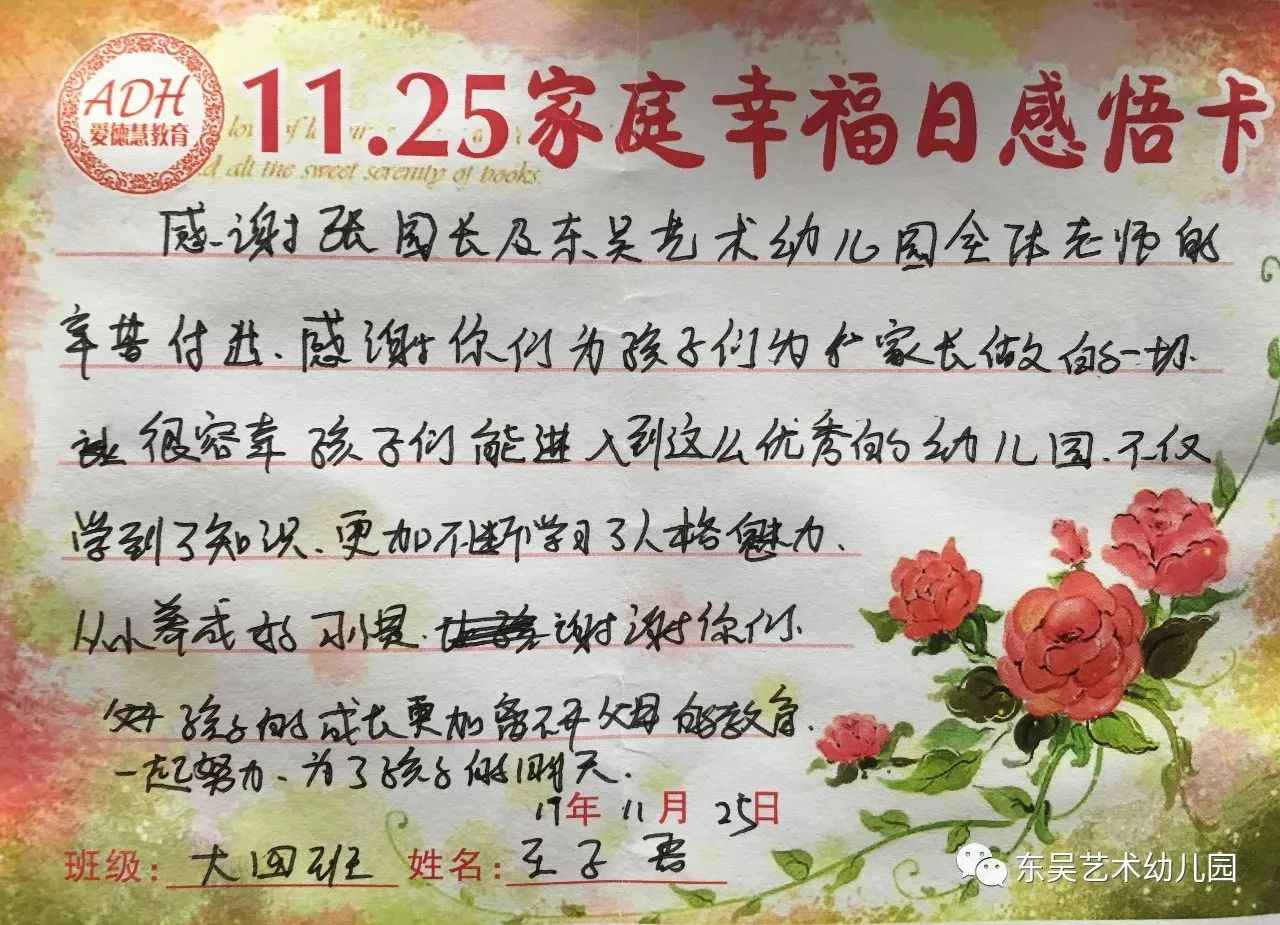 ADH
爱德慧教育
11.25家庭幸福日感悟卡
and all the sweet serenity of books.
感谢张园长及东吴艺术幼儿园全体老师的
辛苦付出、感谢你们为孩子们为个家长做的一切.
很容幸孩子们能进入到这么优秀的幼儿园.不仅
学到了知识、更加不断学习了人格魅力、
从小养成好习惯.谢谢你们.
孩子的成长更加离不开父母的教育.
一起努力、为了孩子的明天.
17年11月25日
班级:大四班 姓名:王子
东吴艺术幼儿园